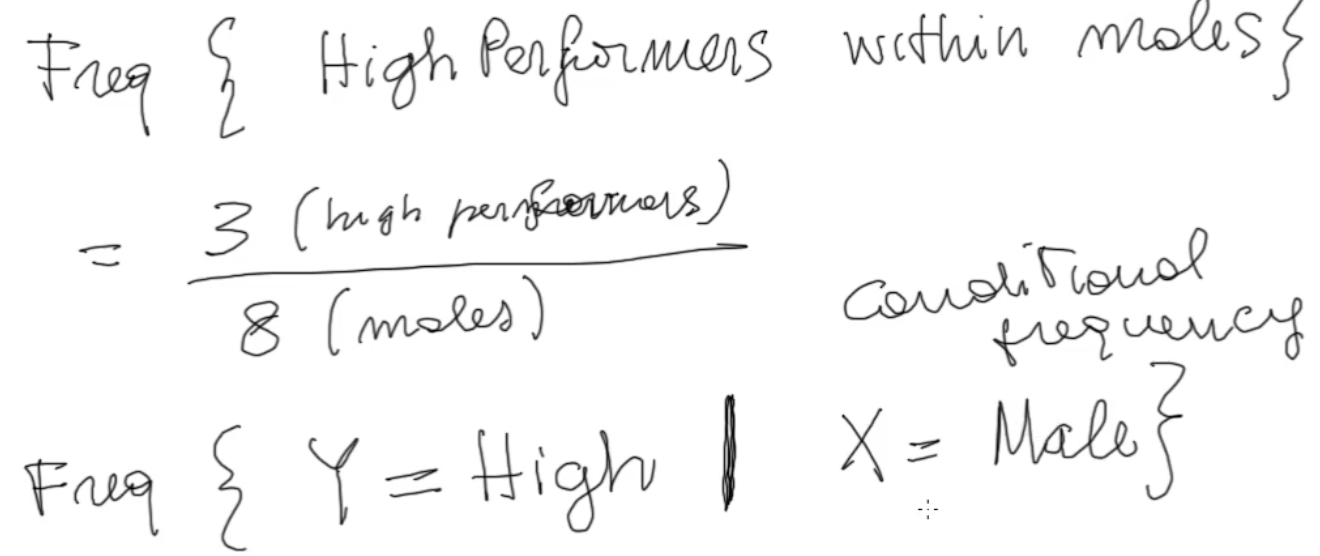 Freq { High Performers within males}
= 3 (high performers)
8 (males)
conditional
frequency
Freq { Y = High | X = Male}